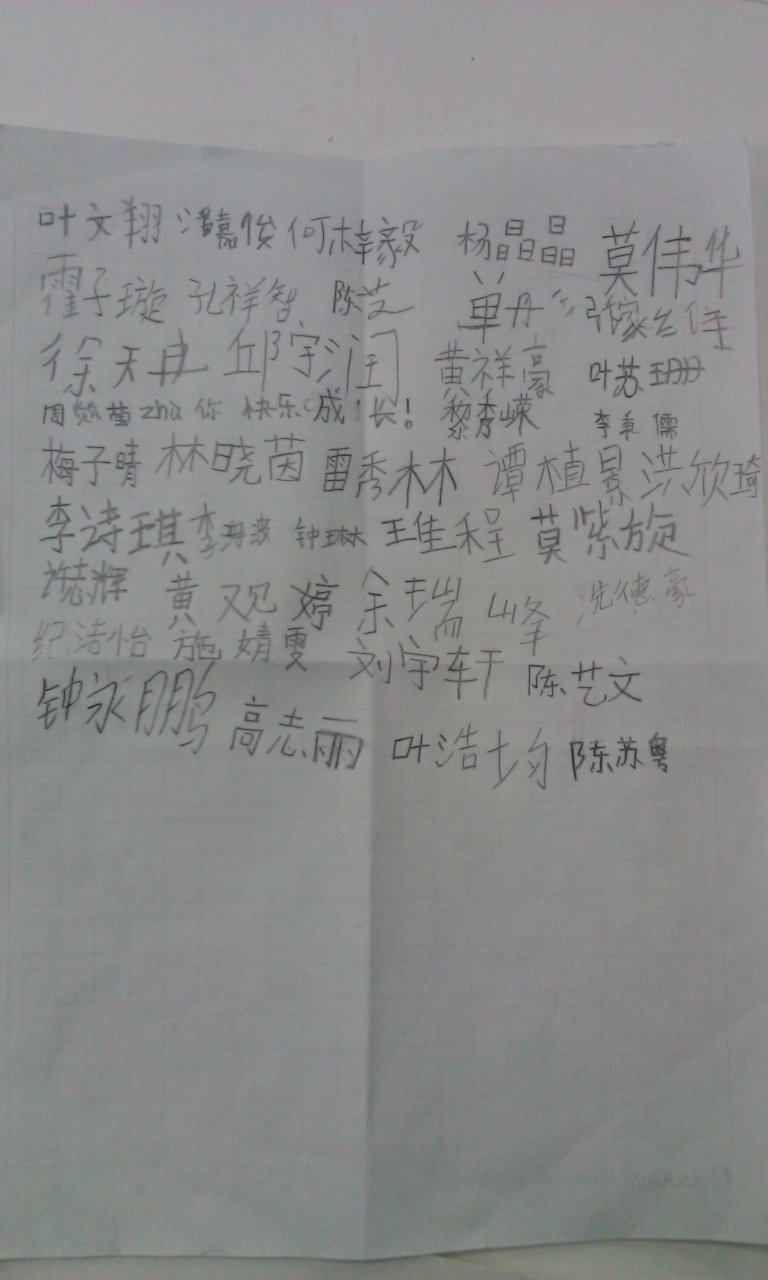 叶文翔 潘嘉俊 何梓毅 杨晶晶 莫伟华
霍子璇 孔祥智 陈芝 单丹 张家
徐天冉 邱宇润 黄祥豪 叶苏珊
周 莹 zhu 你 快乐 成长! 黎秀嵘 李秉儒
梅子晴 林晓茵 雷秀林 谭植景 洪欣琦
李诗琪 李丹波 钟琳 王佳程 莫紫旋
志辉 黄观婷 余瑞峰 冼德豪
纪洁怡 施婧雯 刘宇轩 陈艺文
钟永鹏 高志丽 叶浩均 陈苏粤